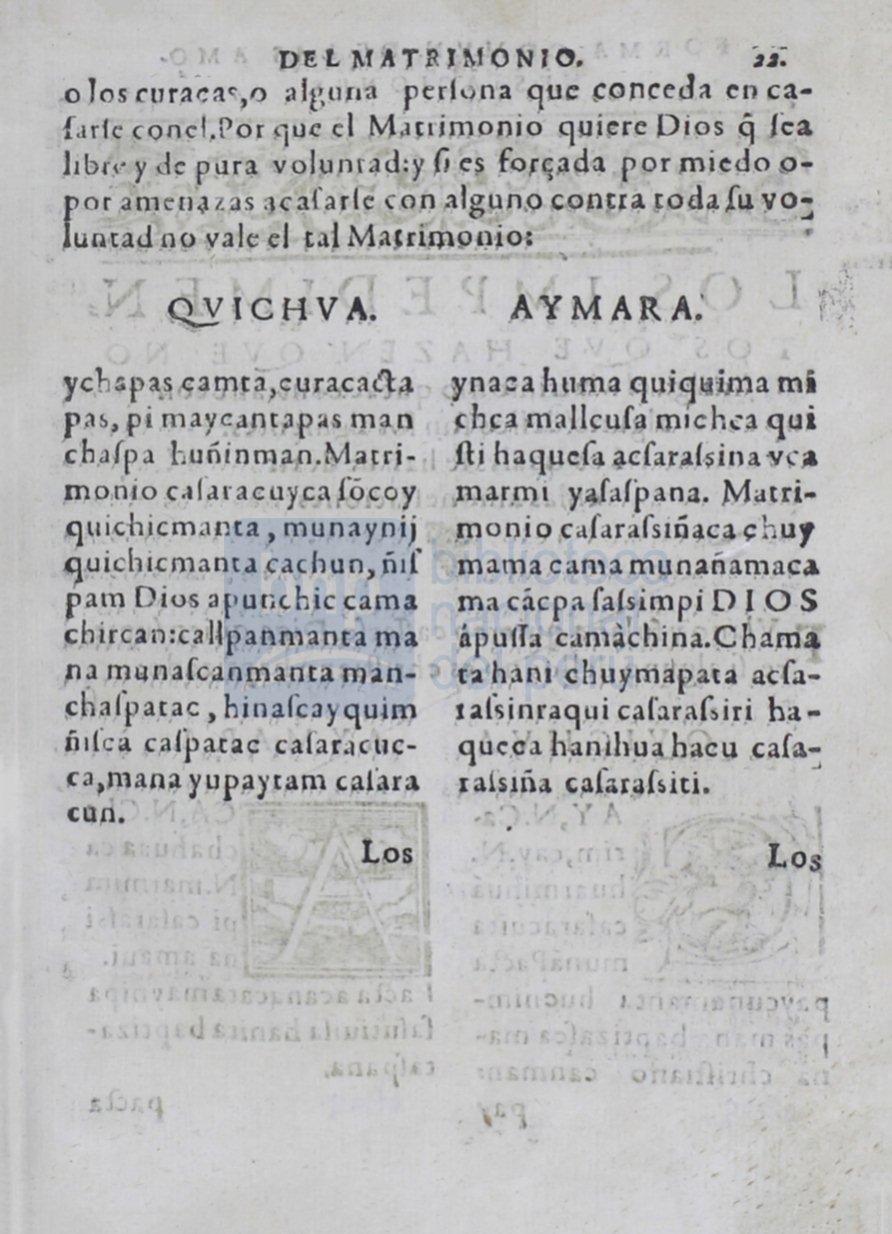 DEL MATRIMONIO. 22.
o los curacas, o alguna persona que conceda en ca-
ſarſe conel. Por que el Matrimonio quiere Dios q̃ ſea
libre y de pura voluntad: y ſi es forçada por miedo o-
por amenazas acaſarſe con alguno contra toda ſu vo-
luntad no vale el tal Matrimonio:
QVICHVA.
ychapas camta, curacacta
pas, pi maycantapas man
chaſpa huñinman. Matri-
monio caſaracuyca ſõcoy
quichicmanta, munaynij
quichicmanta cachun, ñiſ
pam Dios apunchic cama
chircan: callpanmanta ma
na munaſcanmanta man-
chaſpatac, hinaſcayquim
ñiſca caſpatac caſaracuc-
ca, mana yupaytam caſara
cun.
Los
AYMARA.
ynaca huma quiquima mi
chca mallcuſa michca qui
ſti haqueſa acſaraſsina vca
marmi yaſaſpana. Matri-
monio caſaraſsiñaca chuy
mama cama munañamaca
ma cácpa ſaſsimpi DIOS
ápuſſa camàchina. Chama
ta hani chuymapata acſa-
raſsinraqui caſaraſsiri ha-
queca hanihua hacu caſa-
raſsiña caſaraſsiti.
Los
biblioteca
nacional
del perú